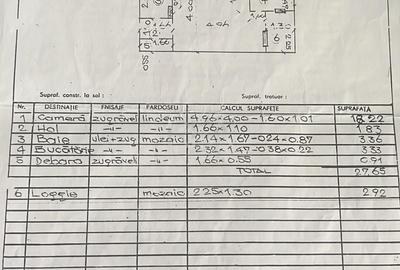 2
1.20
4.96
6
5
1.66
0.55
Supraf. constr. la sol :
Supraf. trotuar :
Nr. DESTINAȚIE FINISAJ PARDOSELI CALCUL SUPRAFEȚE SUPRAFAȚĂ
1 Cameră zugrăveli linoleum 4.96x4.00-1.60x1.01 18.22
2 Hol -"- -"- 1.60x1.10 1.83
3 Baie ulei+zug mozaic 2.14x1.67-0.24x0.87 3.36
4 Bucătărie -"- -"- 2.32x1.47-0.38x0.22 3.33
5 Debara zugrăveli -"- 1.66x0.55 0.91
TOTAL 27.65
6 Loggie mozaic 2.25x1.30 2.92